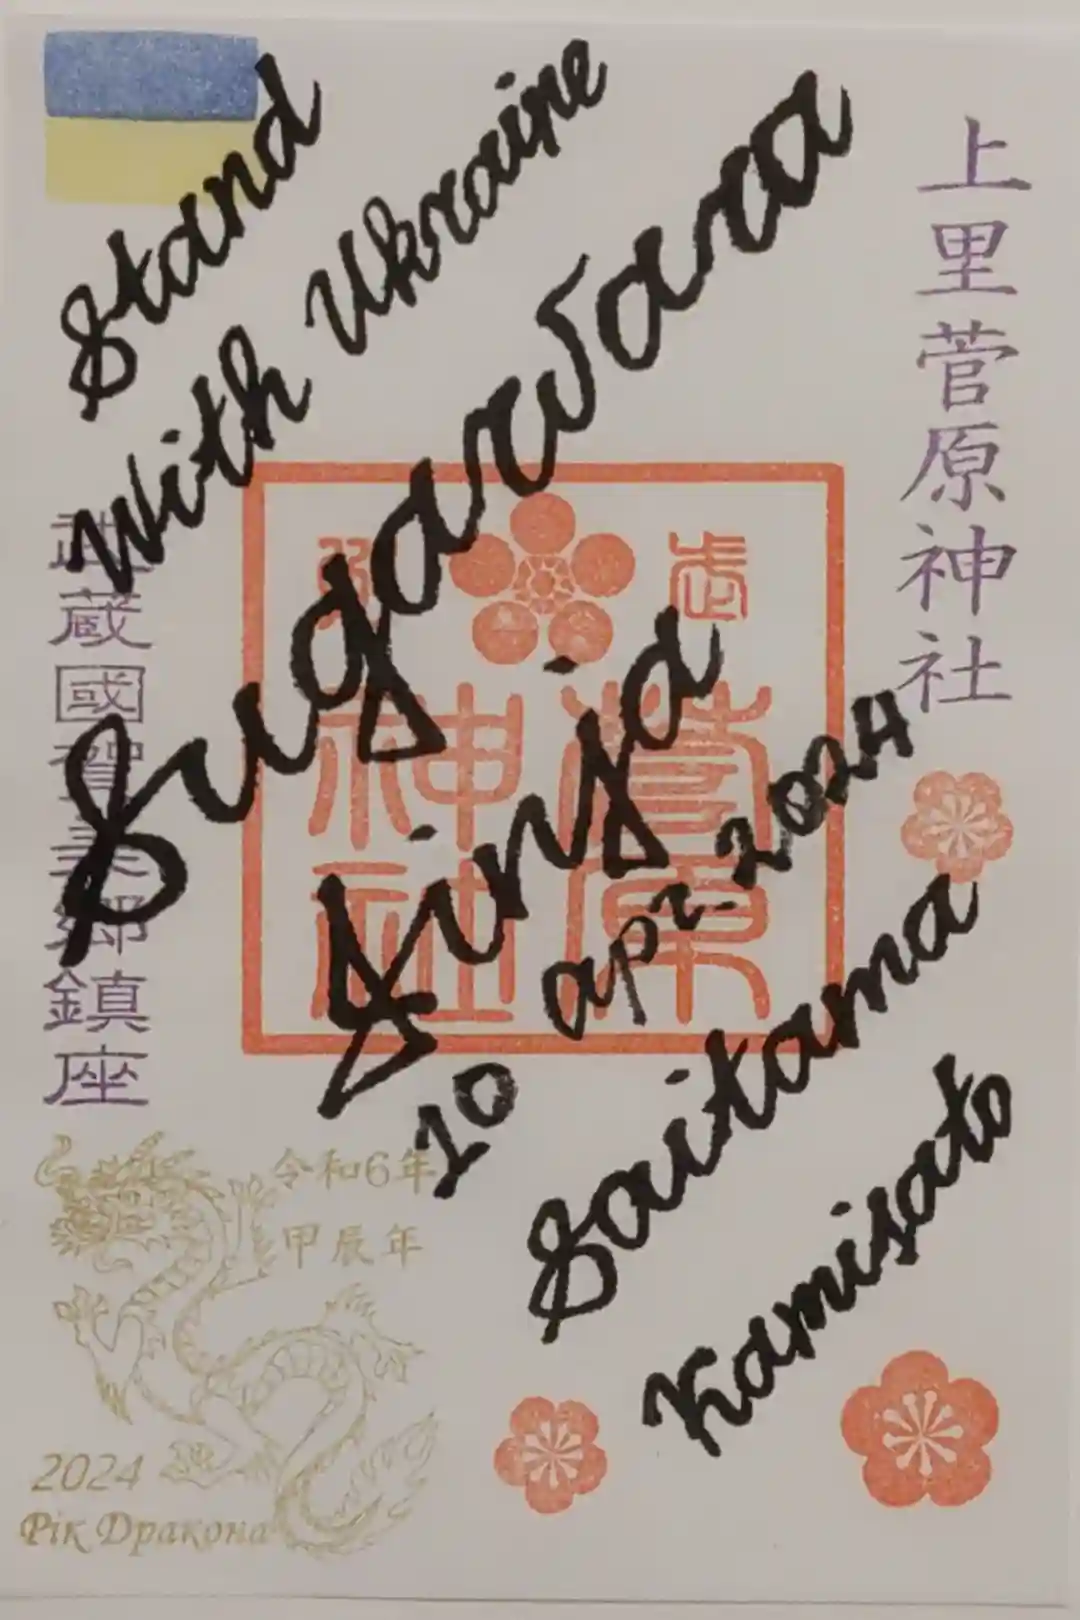 Stand
With Ukraine
Sugawara
Jinja
10 apr. 2024
Saitama
Kamisato
上里菅原神社
武蔵國賀美郷鎮座
菅原
神社
令和6年
甲辰年
2024
Рік Дракона